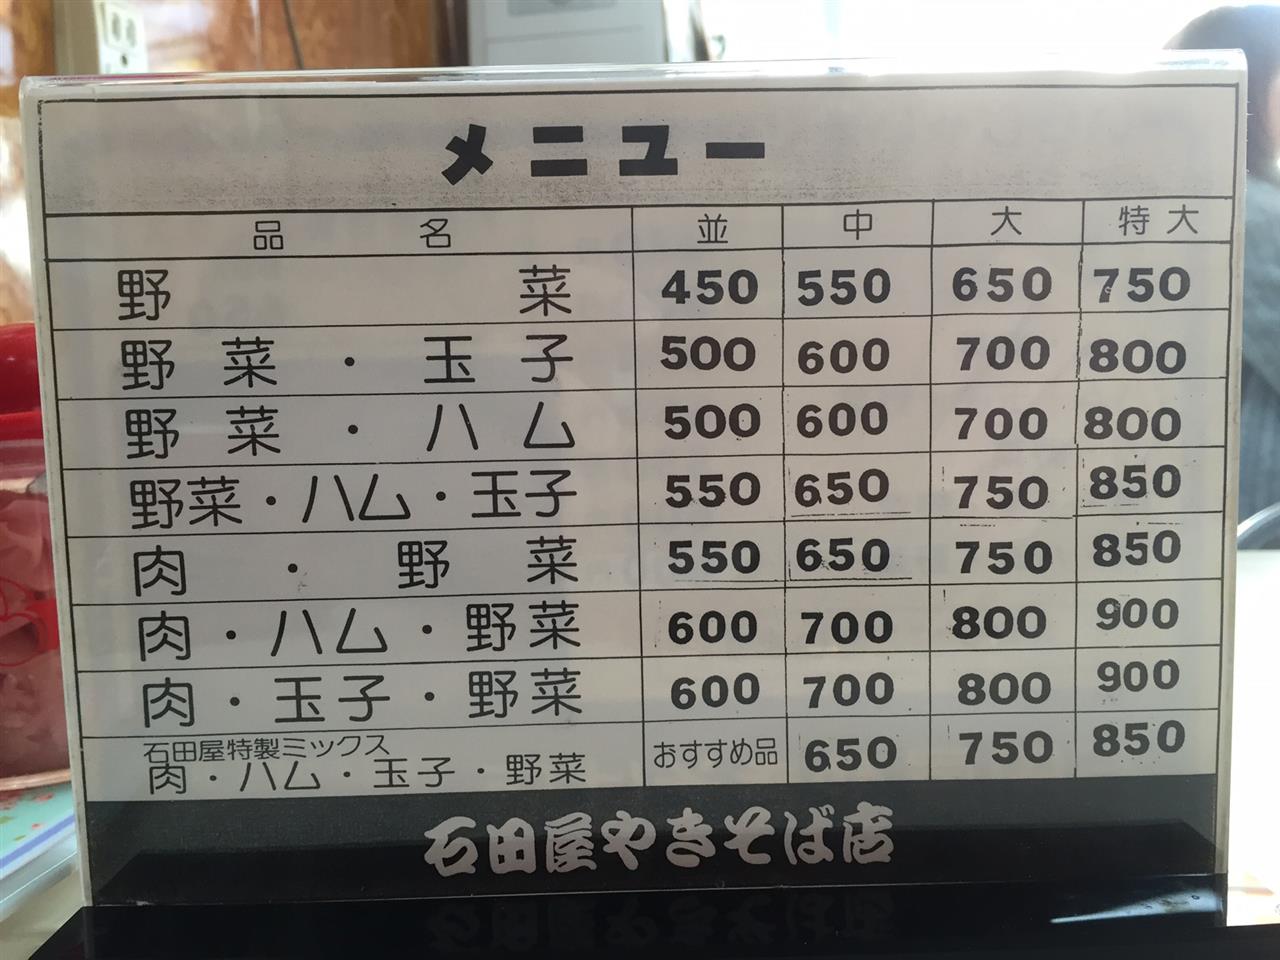 メニュー
品名 並 中 大 特大
野菜 450 550 650 750
野菜・玉子 500 600 700 800
野菜・ハム 500 600 700 800
野菜・ハム・玉子 550 650 750 850
肉・野菜 550 650 750 850
肉・ハム・野菜 600 700 800 900
肉・玉子・野菜 600 700 800 900
石田屋特製ミックス
肉・ハム・玉子・野菜 おすすめ品 650 750 850
石田屋やきそば店